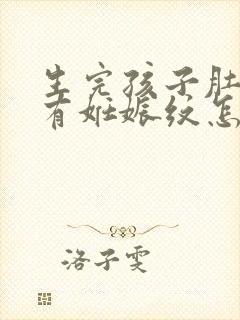 生完孩子肚
有妊娠纹怎
洛子雯